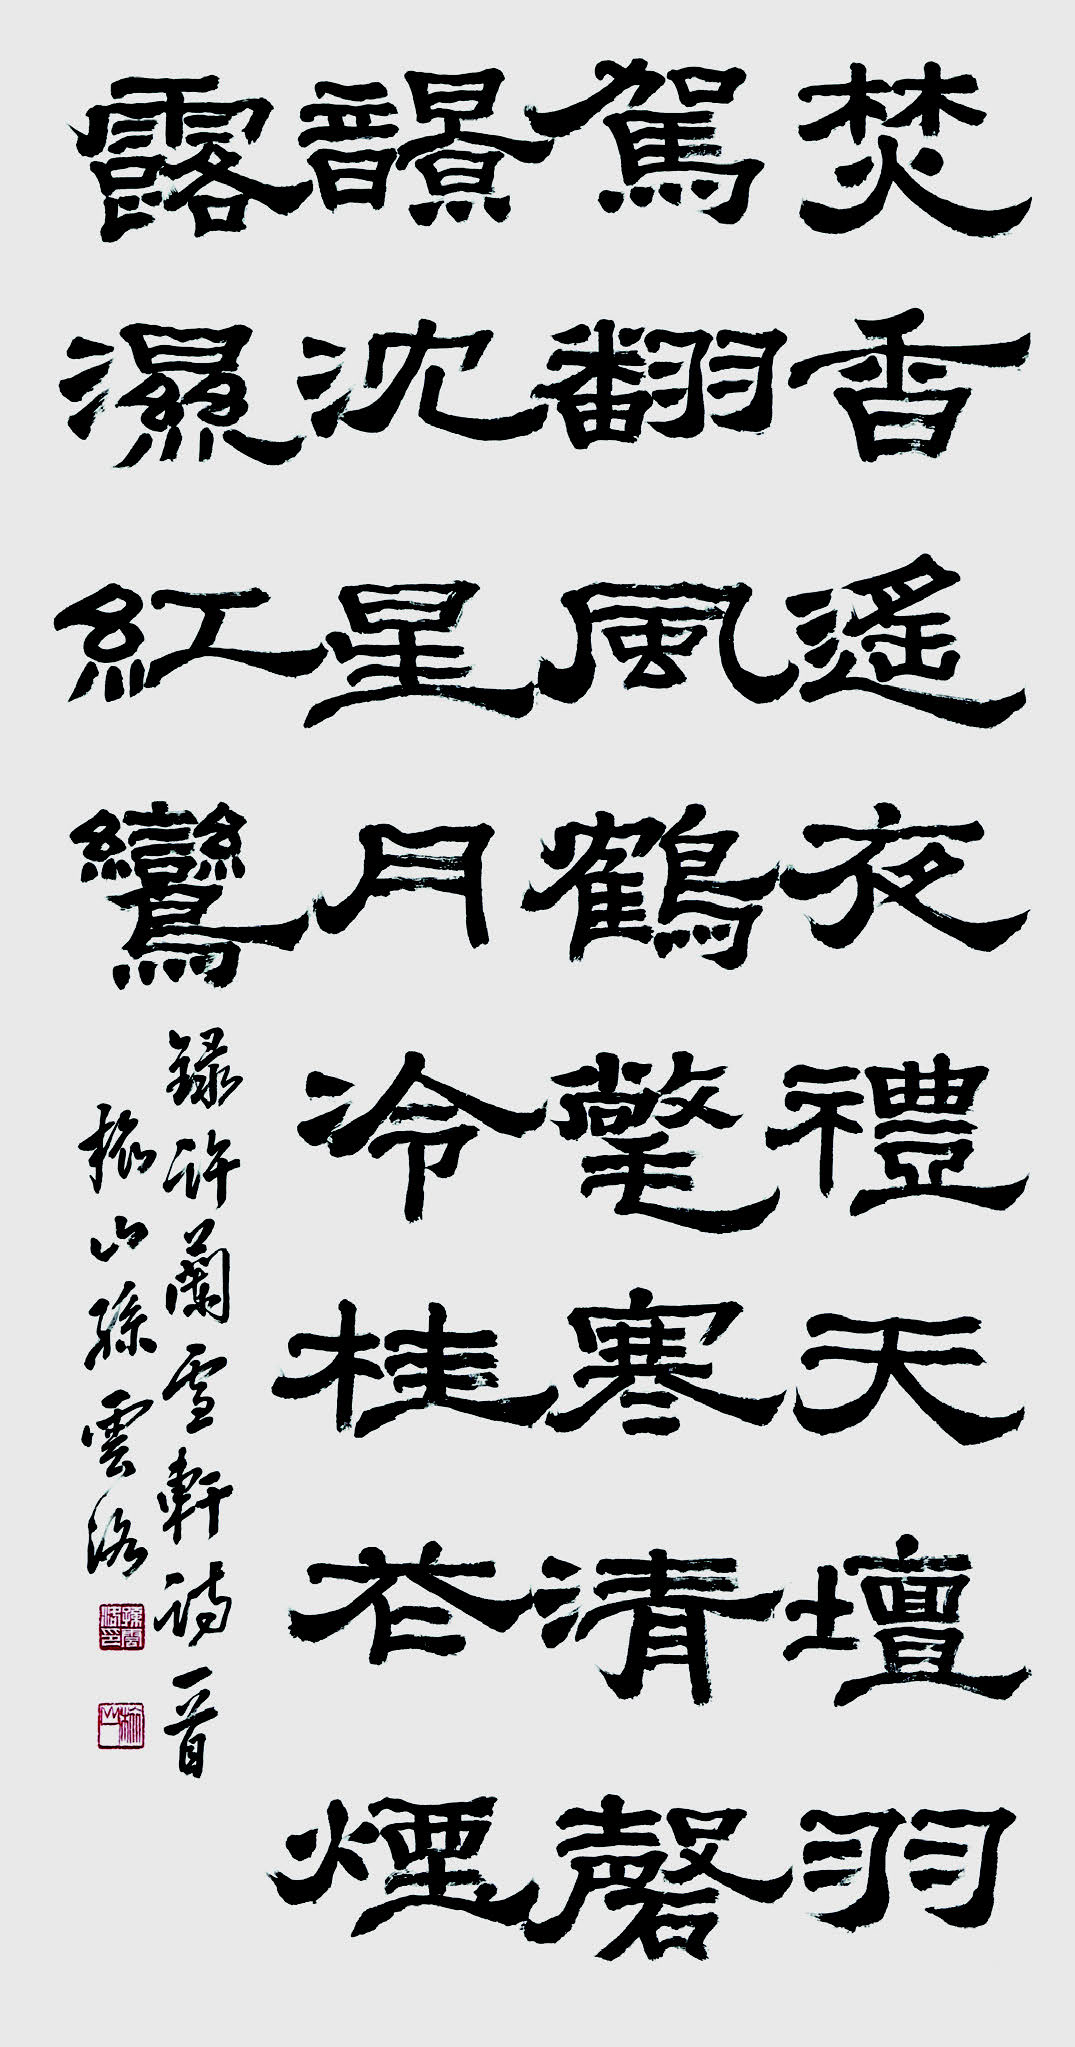 焚香遙夜禮天壇羽
駕翻風鶴氅寒清磬
韻沈星月冷桂花煙
露濕紅鸞
錄許蘭雪軒詩一首
山孫雲洛